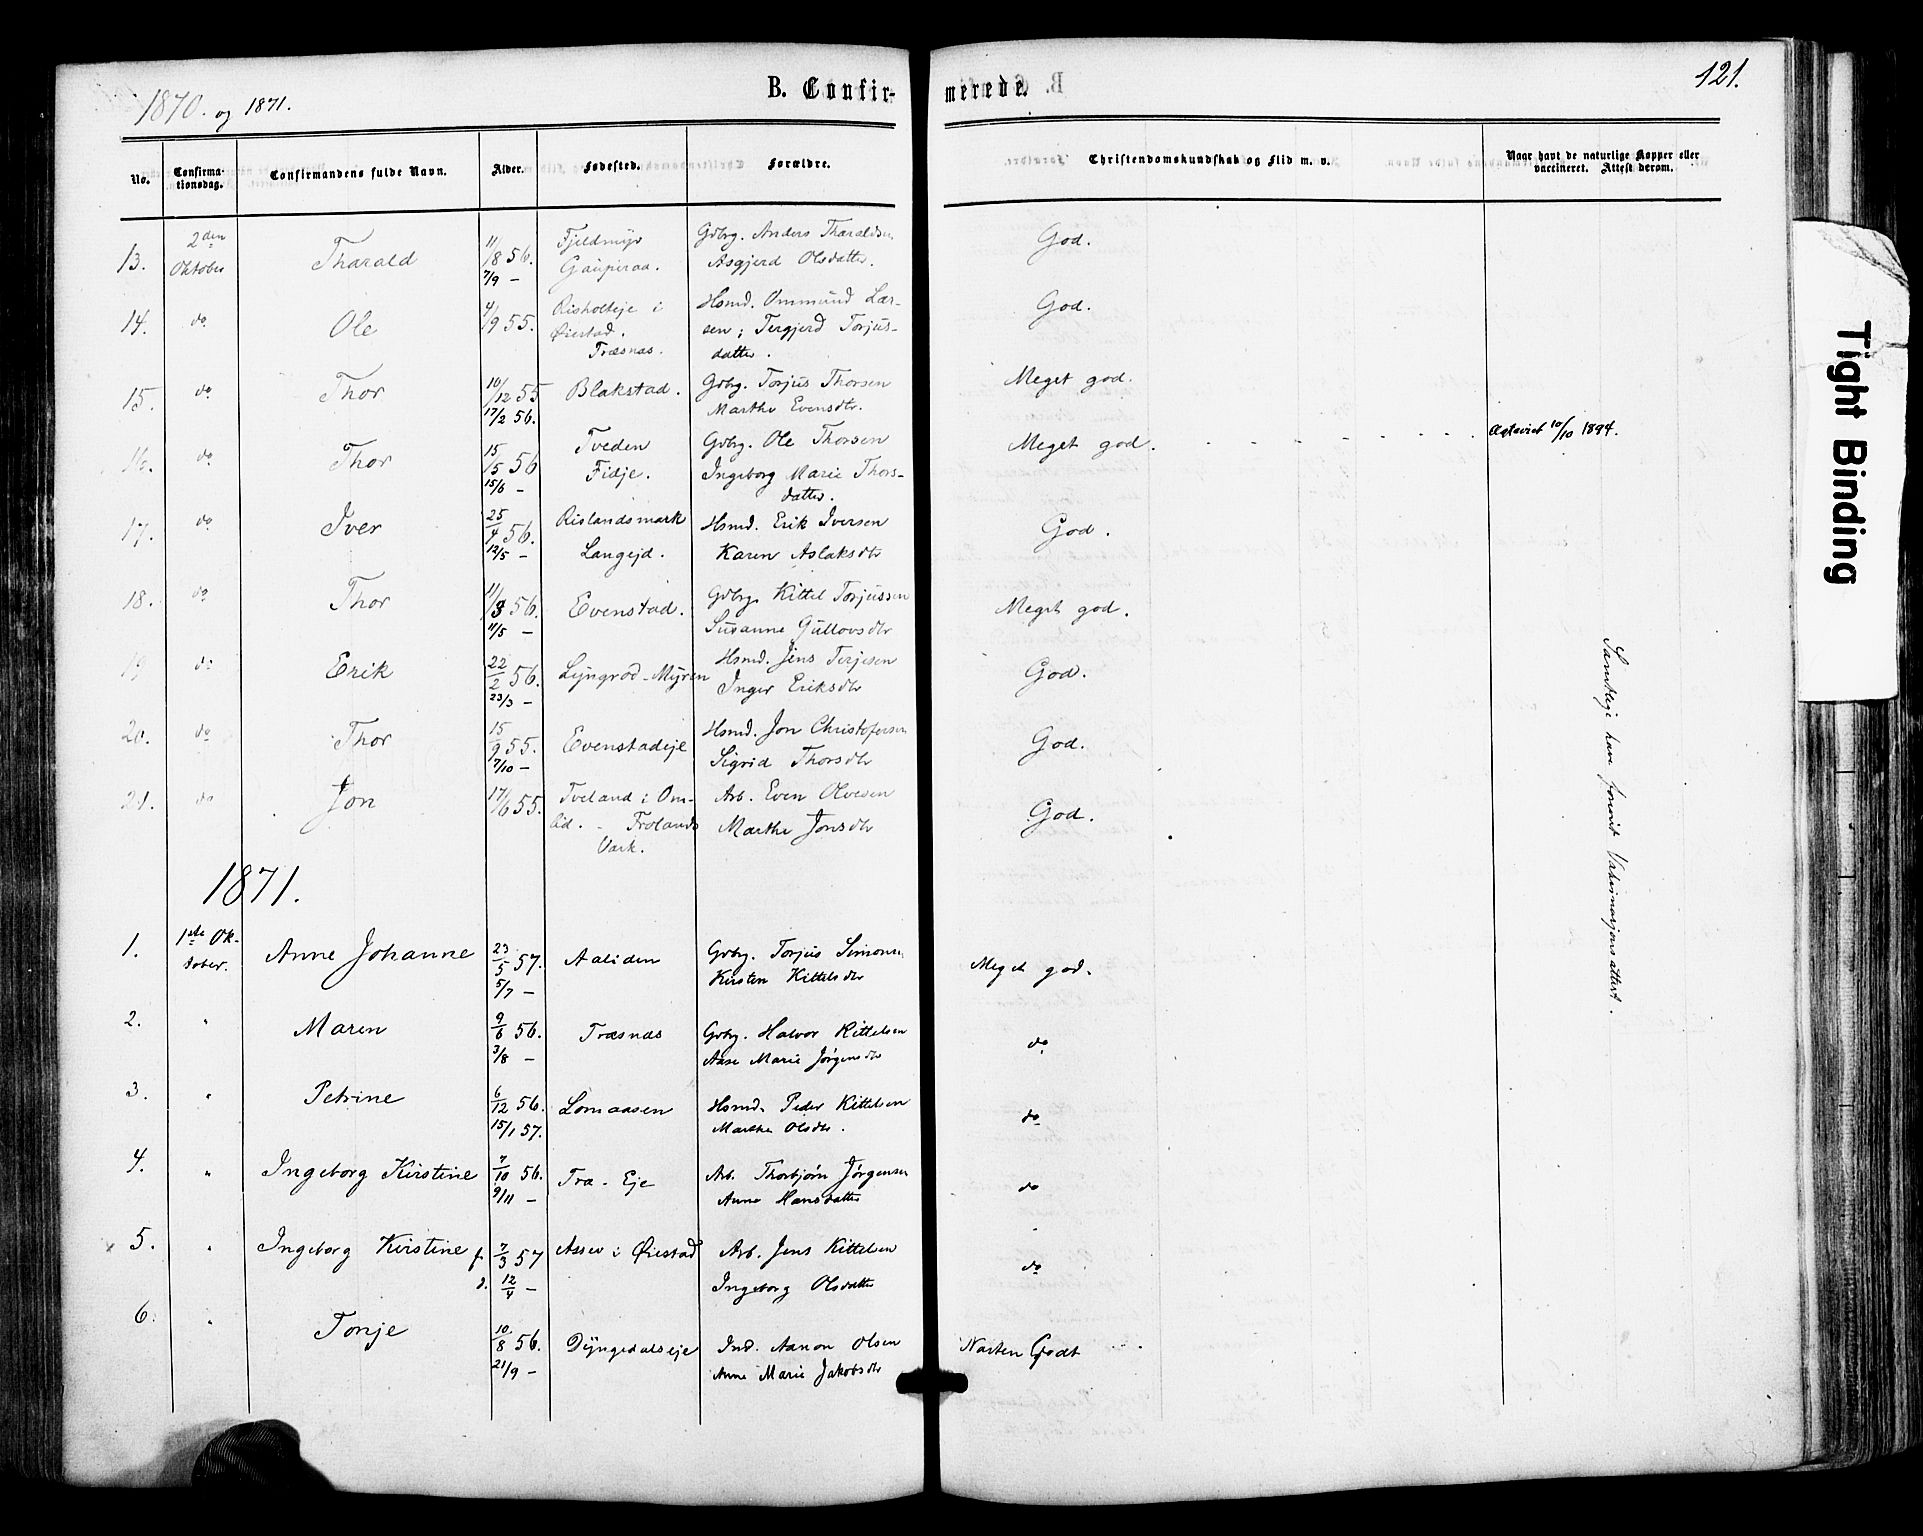 1870. og 1871.
B. Confir-
merede.
121.
No.
Confirma-
tionsdag.
Confirmandens fulde Navn.
Alder.
Fødested.
Forældre.
Christendomskundskab og Flid m. v.
Naar havt de naturlige Kopper eller
vaccineret. Attest derom.
13. 2den Oktober Tharald 11/8 56. 7/9 –
Fjeldmyr
Gdbg. Anders Tharaldsen
Asgjerd Olsdatter.
God.
14. do Ole 4/9 55.
Risholteje i
Øiestad.
Træsnas.
Hsmd. Ommund Lar-
sen; Tergjerd Torjus-
datter.
God.
15. do Thor 10/12 55 17/2 56.
Blakstad.
Gdbg. Torjus Thorsen
Marthe Evensdtr.
Meget god.
16. do Thor 15/5 56 15/6 –
Tveden
Fidje.
Gdbg. Ole Thorsen
Ingeborg Marie Thors-
datter.
Meget god. 10/10 1894.
17. do Iver 25/4 56. 12/5 –
Rislandsmark
Langejd.
Hsmd. Erik Iversen
Karen Aslaksdtr
God.
18. do Thor 11/3 56. 11/5 –
Evenstad.
Gdbg. Kittel Torjussen
Susanne Gullovsdtr
Meget god.
19 do Erik 22/2 56. 23/3 –
Lyngrod-Myren
Hsmd. Jens Terjesen
Inger Eriksdtr
God.
20. do Thor 15/9 55. 7/10 –
Evenstadeje
Hsmd. Jon Christofersen
Sigrid Thorsdtr
God.
21. do Jon 17/6 55.
Tveland i Om-
lid. - Frolands
Værk.
Arb. Even Olvesen
Marthe Jonsdtr
God.
Samtlige have forevist Vaksinasjonsattest.
1871.
1. 1ste Ok-
tober. Anne Johanne 23/5 57. 5/7 –
Aaliden
Gdbg. Torjus Simonsen
Kirsten Kittelsdtr
Meget god.
2. " Maren 9/6 56. 3/8 –
Træsnæs
Gdbg. Halvor Kittelsen
Aase Marie Jørgensdtr
do
3. " Petrine 6/12 56. 15/1 57.
Lomaasen
Hsmd. Peder Kittelsen
Marthe Olsdtr.
do
4. " Ingeborg Kirstine 7/10 56. 9/11 –
Tra-Eje
Arb. Thorbjørn Jørgensen
Anne Hansdatter
do
5. " Ingeborg Kirstine f. 7/3 57 d. 12/4 –
Assev i Øiestad
Arb. Jens Kittelsen
Ingeborg Olsdatter
do
6. " Tonje 10/8 56. 21/9 –
Dyngedalseje
Ind. Aanon Olsen
Anne Marie Jakobsdtr
Næsten Godt
Tight Binding